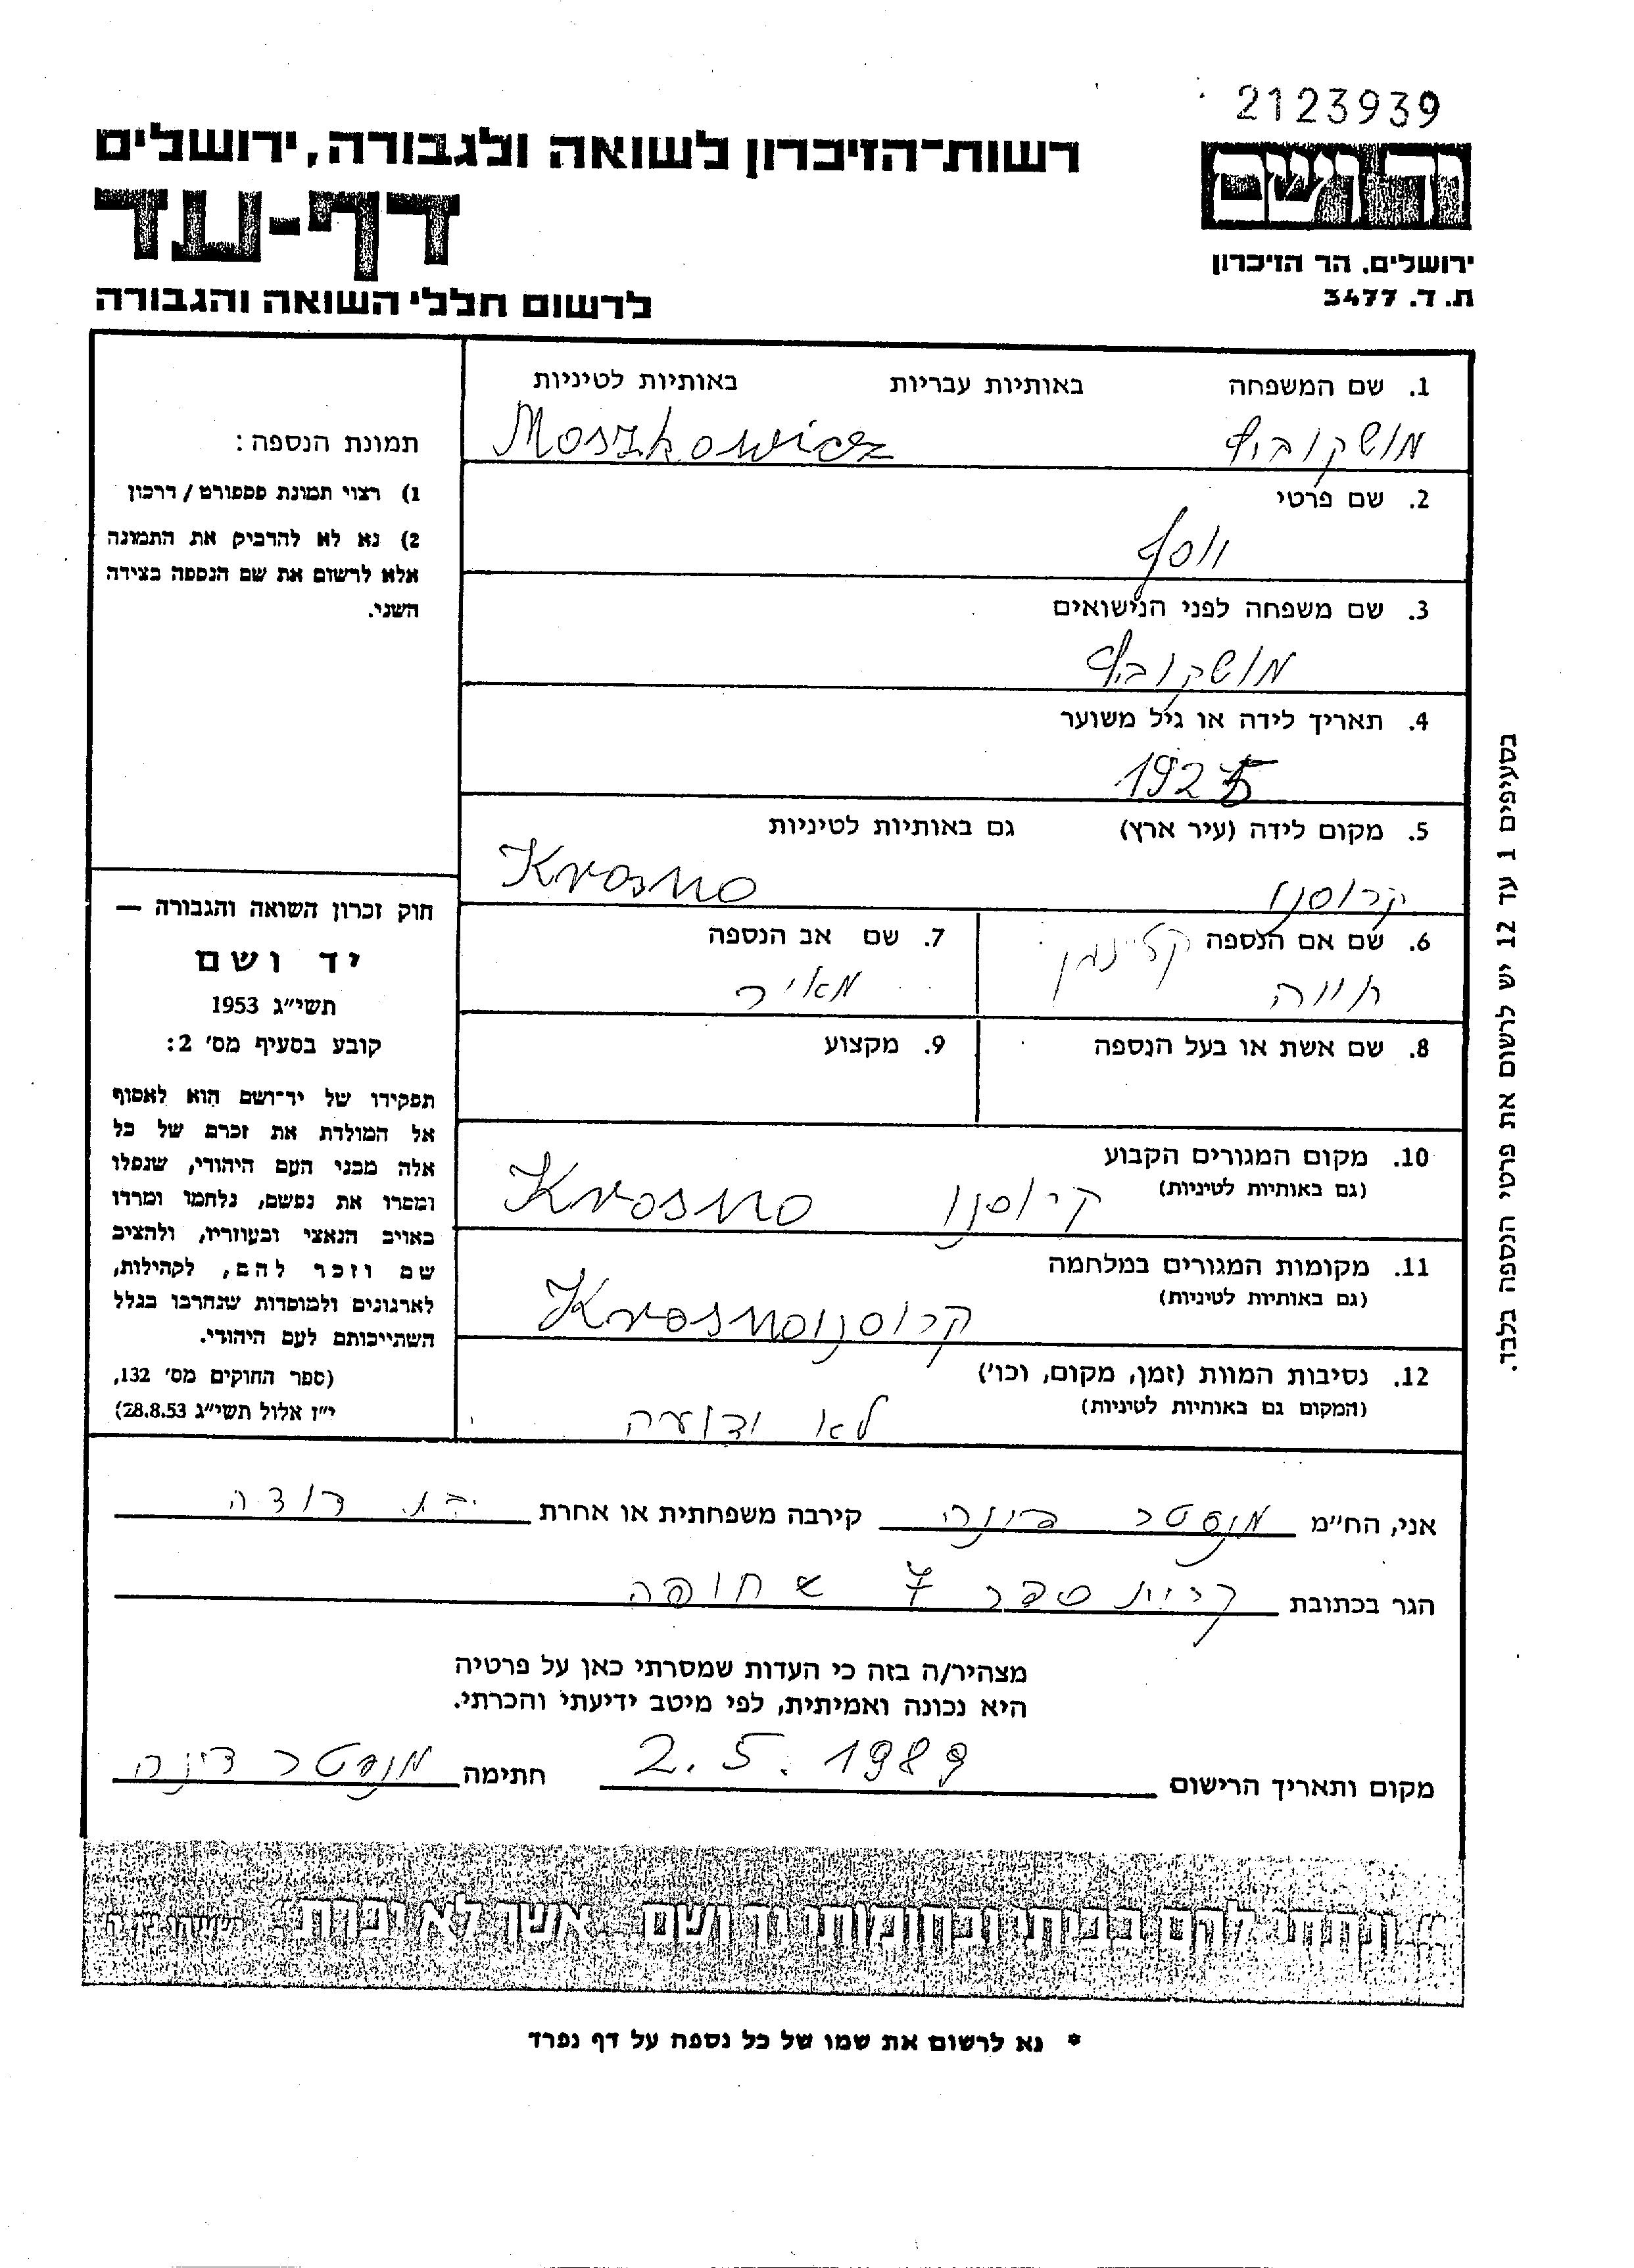 2123939
רשות־הזיכרון לשואה ולגבורה, ירושלים
דף-עד
לרשום חללי השואה והגבורה
יד ושם
ירושלים, הר הזיכרון
ת. ד. 3477
1. שם המשפחה באותיות עבריות באותיות לטיניות
מושקוביץ Moszkowicz
2. שם פרטי
יוסף
3. שם משפחה לפני הנישואים
מושקוביץ
4. תאריך לידה או גיל משוער
1925
5. מקום לידה (עיר ארץ) גם באותיות לטיניות
קרוסנו Krosno
6. שם אם הנספה
חווה
7. שם אב הנספה
מאיר
8. שם אשת או בעל הנספה
9. מקצוע
10. מקום המגורים הקבוע
(גם באותיות לטיניות)
קרוסנו Krosno
11. מקומות המגורים במלחמה
(גם באותיות לטיניות)
קרוסנו Krosno
12. נסיבות המוות (זמן, מקום, וכו')
(המקום גם באותיות לטיניות)
לא ידועה
תמונת הנספה:
1) רצוי תמונת פספורט/דרכון
2) נא לא להדביק את התמונה
אלא לרשום את שם הנספה בצידה
השני.
חוק זכרון השואה והגבורה —
יד ושם
תשי״ג 1953
קובע בסעיף מס׳ 2:
תפקידו של יד־ושם הוא לאסוף
אל המולדת את זכרם של כל
אלה מבני העם היהודי, שנפלו
ומסרו את נפשם, נלחמו ומרדו
באויב הנאצי ובעוזריו, ולהציב
שם וזכר להם, לקהילות,
לארגונים ולמוסדות שנחרבו בגלל
השתייכותם לעם היהודי.
(ספר החוקים מס׳ 132,
י״ז אלול תשי״ג 28.8.53)
בסעיפים 1 עד 12 יש לרשום את פרטי הנספה בלבד.
אני, הח״מ דינה קירבה משפחתית או אחרת בת דודה
הגר בכתובת קרית ספר 7 חיפה
מצהיר/ה בזה כי העדות שמסרתי כאן על פרטיה
היא נכונה ואמיתית, לפי מיטב ידיעתי והכרתי.
מקום ותאריך הרישום 2.5.1989 חתימה דינה
״ונתתי להם בביתי ובחומותי יד ושם...אשר לא יכרת״
* נא לרשום את שמו של כל נספה על דף נפרד